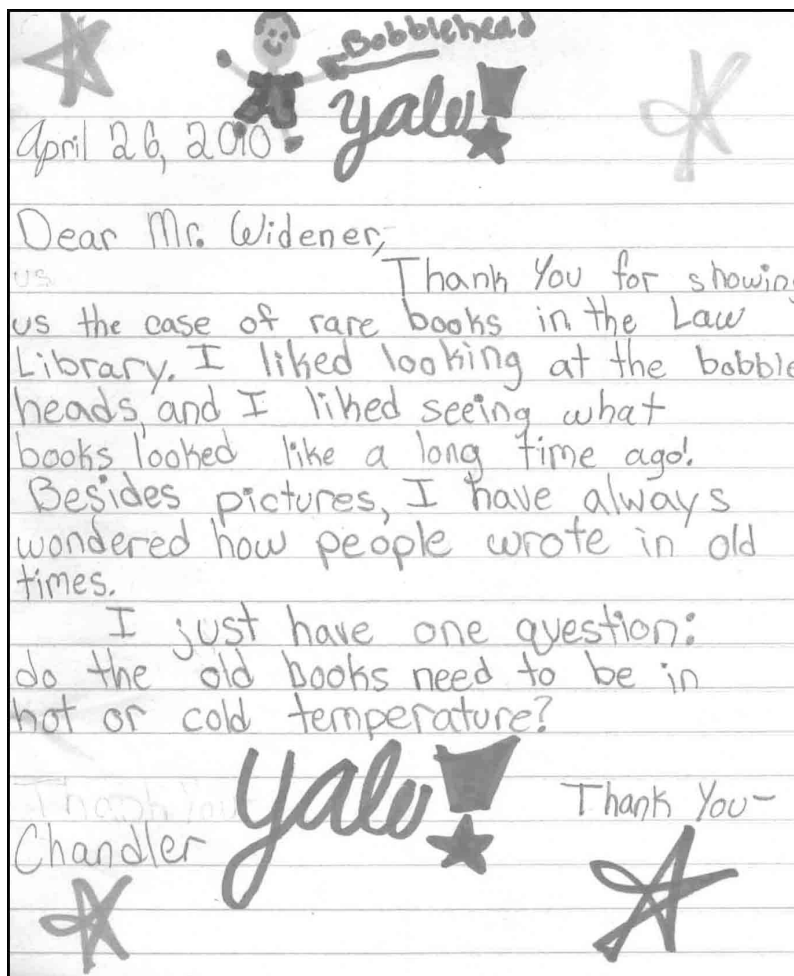 Bobblehead
Yale!
April 26, 2010
Dear Mr. Widener,
us Thank You for showing
us the case of rare books in the Law
Library. I liked looking at the bobble
heads, and I liked seeing what
books looked like a long time ago!
Besides pictures, I have always
wondered how people wrote in old
times.
I just have one question:
do the old books need to be in
hot or cold temperature?
Yale!
Thank You Thank You-
Chandler